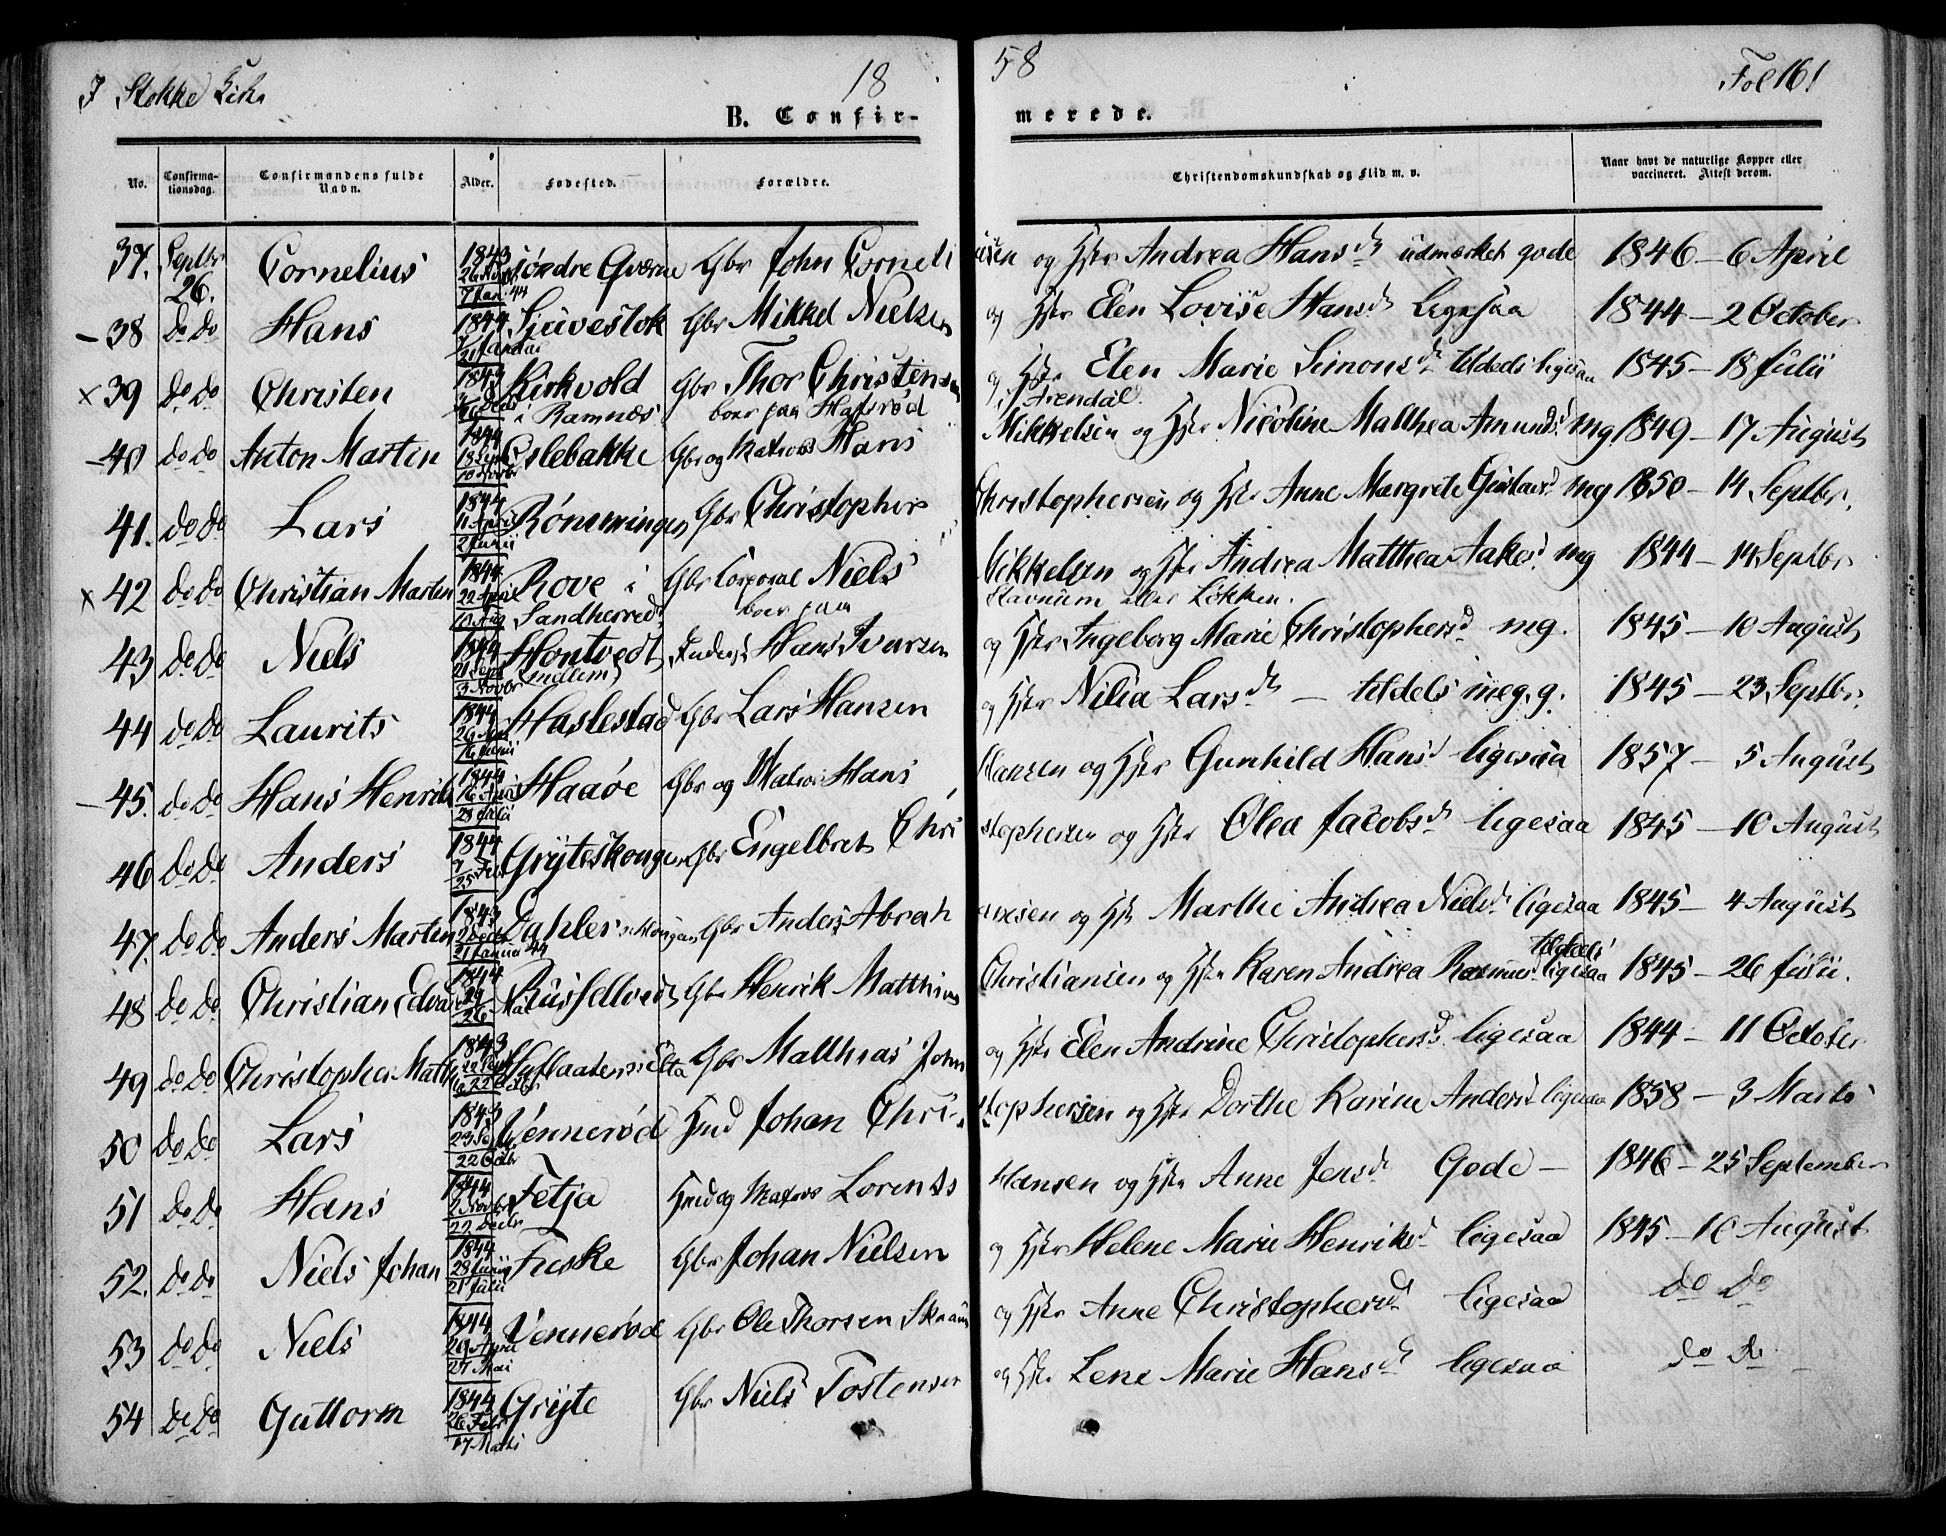 I Stokke Kirke 18 58 Fol 161
B. Confir- merede.
No. Confirma-tionsdag. Confirmandens fulde Navn. Alder. Fødested. Forældre. Christendomskundskab og Flid m. v. Naar havt de naturlige Kopper eller vaccineret. Attest derom.
37. Septbr 26. Cornelius 1843 26 Novbr 7 Jan. 44 Søndre Gværne Gbr John Corneli usen og Hstr Andrea Hansd. udmærket gode 1846 – 6 April
– 38 do do Hans 1844 Sjuvestok Gbr Mikkel Nielsen og Hstr Elen Lovise Hansd. ligesaa 1844 – 2 October
x 39 do do Christen 1843 Kirkvold i Ramnæs Gbr Thor Christensen boer paa Hafsrød og Hstr Elen Marie Simonsd. tildels ligesaa 1845 – 18 Julii
– 40 do do Anton Martin 1844 18 Septbr 10 Novbr Eslebakke Gbr og Matros Hans i Arendal. Mikkelsen og Hstr Nicoline Matthea Amundsd. mg 1849 – 17 August
41. do do Lars 1844 11 April 2 Junii Rømmingen Gbr Christopher Christophersen og Hstr Anne Margrete Gustavsd. mg 1850 – 14 Septbr.
x 42 do do Christian Martin 1844 22 April 10 Aug Rove i Sandherred Gbr Corporal Niels boer paa Mikkelsen og Hstr Andrea Matthea Aakesd. mg 1844 – 14 Septbr
Stavnum eller Løkken.
43 do do Niels 1844 21 Sept 3 Novbr Hontvedt (mellem) Hans Iversen og Hstr Ingeborg Marie Christophersd. mg. 1845 – 10 August
44 do do Laurits 1844 26 Mai 16 Junii Haslestad Gbr Lars Hansen og Hstr Nilia Larsd. – tildels meg. g. 1845 – 23 Septbr.
– 45. do do Hans Henrik 1844 16 Juni 28 Julii Haaøe Gbr og Matros Hans Hansen og Hstr Gunhild Hansd. ligesaa 1857 – 5 August
46 do do Anders 1844 7 25 Febr Grøteskougen Gbr Engelbret Chri stophersen og Hstr Olea Jacobsd. ligesaa 1845 – 10 August
47. do do Anders Martin 1843 2 Decbr 21 Januar 44 Gbr Anders Abrah amsen og Hstr Marthe Andrea Nielsd. ligesaa 1845 – 4 August
48 do do Christian Edvard 1844 26 Mai Russellvedt Gbr Henrik Matthias Christiansen og Hstr Karen Andrea Rasmusd. tildeels ligesaa 1845 – 26 Julii.
49 do do Christopher Matt 1843 22 Octbr Gbr Matthias John og Hstr Elen Andrine Christophersd. ligesaa 1844 – 11 October
50 do do Lars 1843 23 Sept 22 Octbr Vennerød Hmd Johan Chri- stophersen og Hstr Dorthe Karine Andersd. ligesaa 1858 – 3 Marts
51 do do Hans 1844 2 Novbr 22 Decbr Fetja Hmd og Matros Lorents Hansen og Hstr Anne Jensd. Gode – 1846 – 25 September
52. do do Niels Johan 1844 28 Junii 21 Julii Feske Gbr Johan Nielsen og Hstr Helene Marie Henriksd. ligesaa 1845 – 10 August
53 do do Niels 1844 20 April 27 Mai Vennerød Gbr Ole Thorsen og Hstr Anne Christophersd. ligesaa do do
54 do do Guttorm 1844 26 Febr 17 Marts Grøte Gbr Niels Tostensen og Hstr Lene Marie Hansd. ligesaa do do